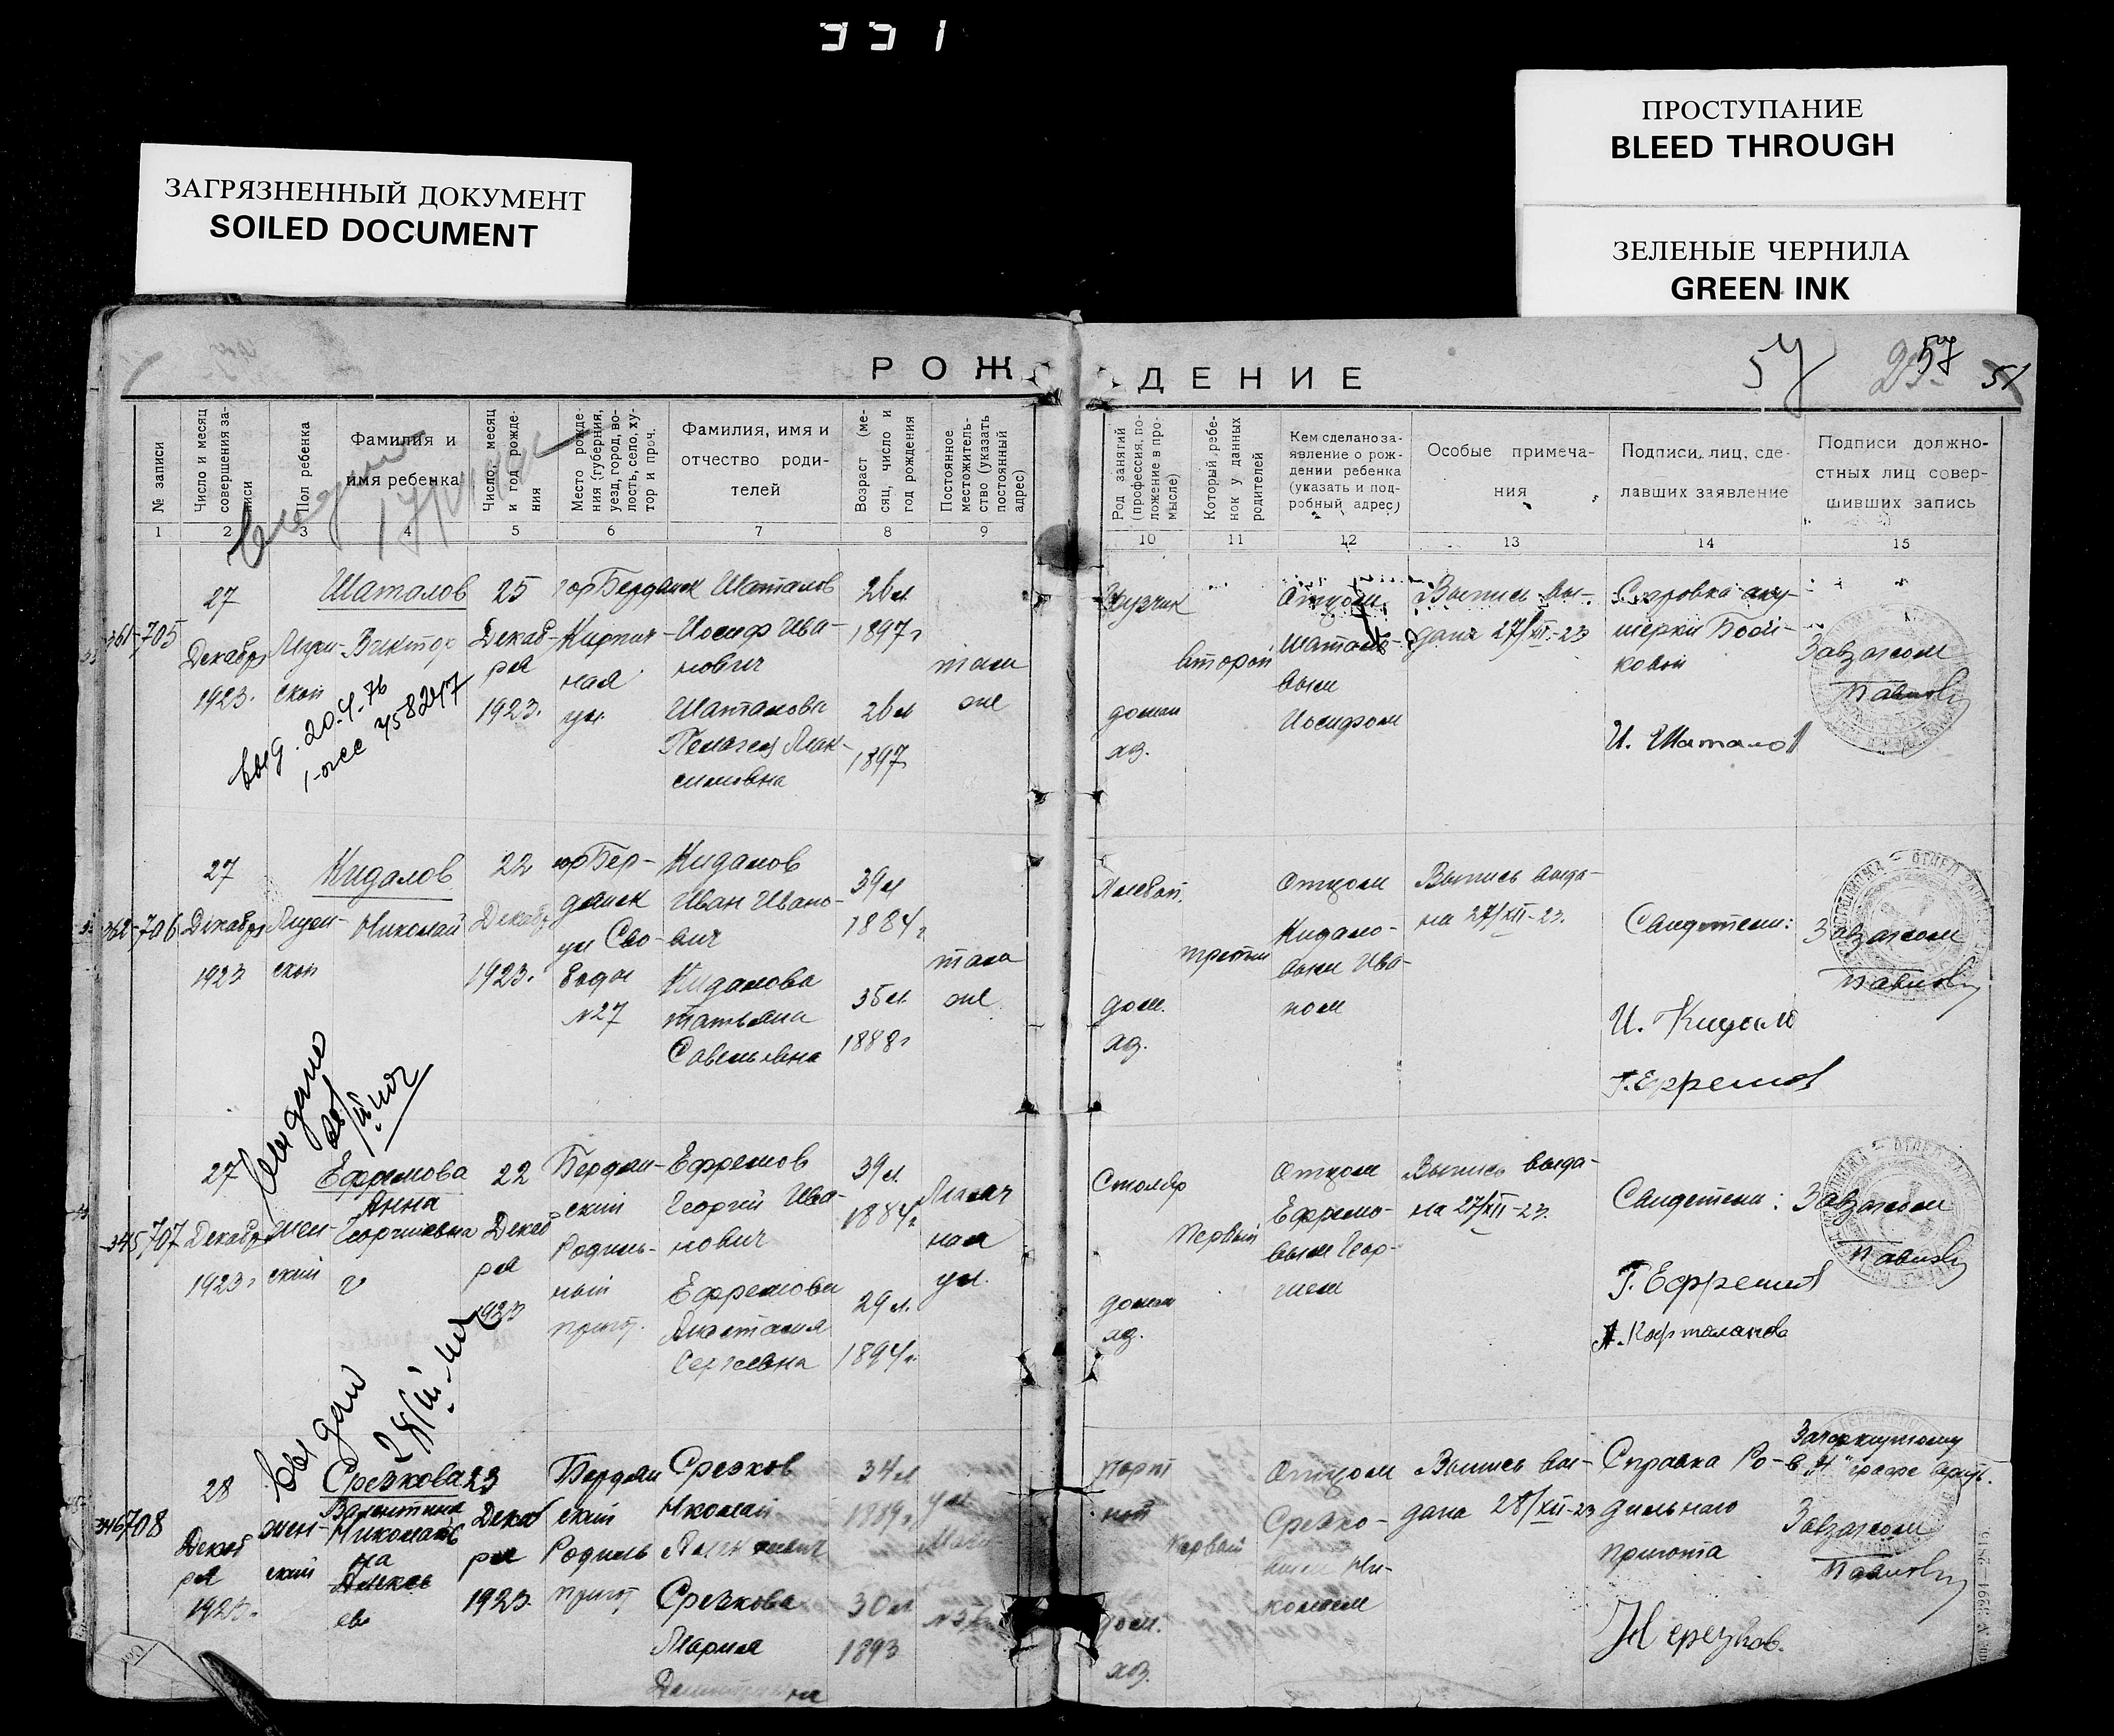 331
ЗАГРЯЗНЕННЫЙ ДОКУМЕНТ
SOILED DOCUMENT
ПРОСТУПАНИЕ
BLEED THROUGH
ЗЕЛЕНЫЕ ЧЕРНИЛА
GREEN INK
РОЖ
ДЕНИЕ
57
57
51
№ записи
Число и месяц
совершения за-
писи
Пол ребенка
Фамилия и
имя ребенка
Число, месяц
и год рожде-
ния
Место рожде-
ния (губерния,
уезд, город, во-
лость, село, ху-
тор и проч.
Фамилия, имя и
отчество роди-
телей
Возраст (ме-
сяц, число и
год рождения
Постоянное
местожитель-
ство (указать
постоянный
адрес)
Род занятий
(профессия, по-
ложение в про-
мысле)
Который ребе-
нок у данных
родителей
Кем сделано за-
явление о рож-
дении ребенка
(указать и под-
робный адрес)
Особые примеча-
ния
Подписи лиц, сде-
лавших заявление
Подписи должно-
стных лиц совер-
шивших запись
1 2 3 4 5 6 7 8 9
10 11 12 13 14 15
361-705
27
Декабря
1923.
Муж-
ской
Шаталов
Виктор
выд. 20.4.76
25
Декаб-
ря
1923.
гор Бердянск
Кирпич-
ная
ул.
Шаталов
Иосиф Ива-
нович
Шаталова
Пелагея Мак-
симовна
26 л
1897 г
26 л
1897
там
же
Грузчик
домаш
хоз.
второй
Отцом
Шатало-
вым
Иосифом
Выпись вы-
дана 27/XII-23
Справка аку-
шерки Бой-
ковой
И. Шаталов
Завзагсом
362-706
27
Декабря
1923
Муж-
ской
Кидалов
Николай
22
Декабр
1923.
гор Бер-
дянск
ул Сво-
боды
№27
Кидалов
Иван Ивано-
вич
Кидалова
Татьяна
Савельевна
39 л
1884 г
35 л.
1888 г
там
же
дом.
хоз.
третий
Отцом
Кидало-
вым Ива-
ном
Выпись выда-
на 27/XII-23.
Свидетели:
И. Кидало
Г. Ефремов
Завзагсом
выдано
345,707
27
Декабр
1923 г
жен-
ский
Ефремова
Анна
Георгиевна
22
Декаб
ря
1923
Бердян-
ский
Родиль-
ный
приют.
Ефремов
Георгий Ива-
нович
Ефремова
Анастасия
Сергеевна
39 л.
1884 г.
29 л.
1894 г.
ул.
Столяр
домаш
хоз.
Первый
Отцом
Ефремо-
вым Геор-
гием
Выпись выда-
на 27/XII-23.
Свидетели:
Г. Ефремов
Завзагсом
выдано
346708
28
Декаб
ря
1923.
жен-
ский
Срезкова
Валентина
Николаев
на
23
Декаб
ря
1923.
Бердян
ский
Родиль
приют
Срезков
Николай
Срезкова
Мария
34 л
1889 г
30 л
1893
ул
№36
Порт
ной
дом.
хоз.
Первый
Отцом
Срезко-
вым Ни-
колаем
Выпись вы-
дана 28/XII-23
Справка Ро-
дильного
приюта
Зачеркнутому
в "4" графе верить.
Завзагсом